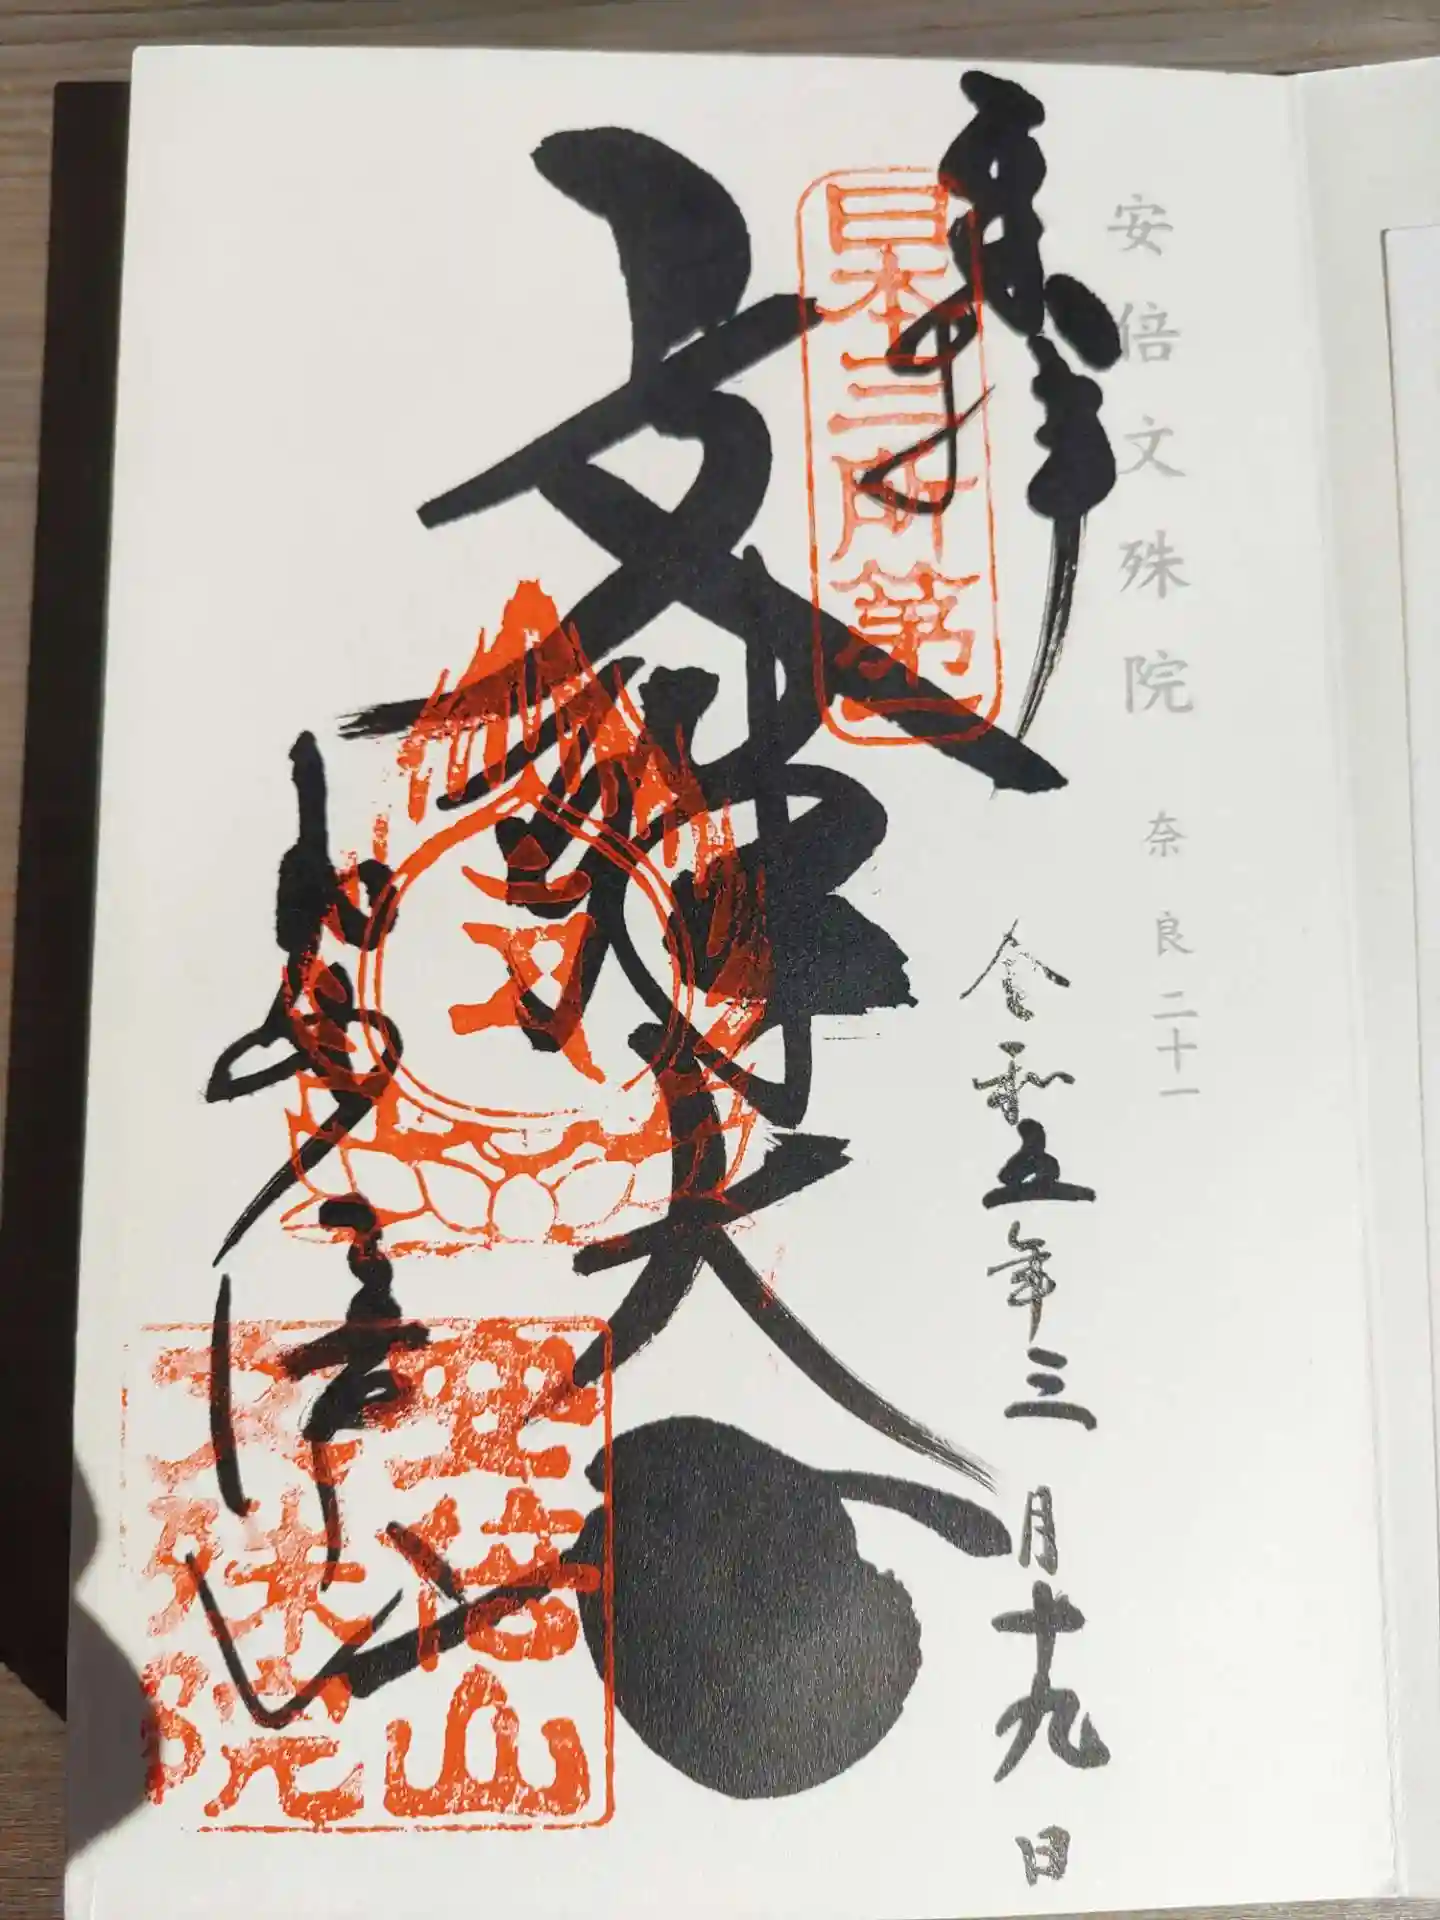 安倍文殊院 奈良二十一
奉拝
令和五年三月十九日
日本三所第一
文殊大士
安倍山
文殊院